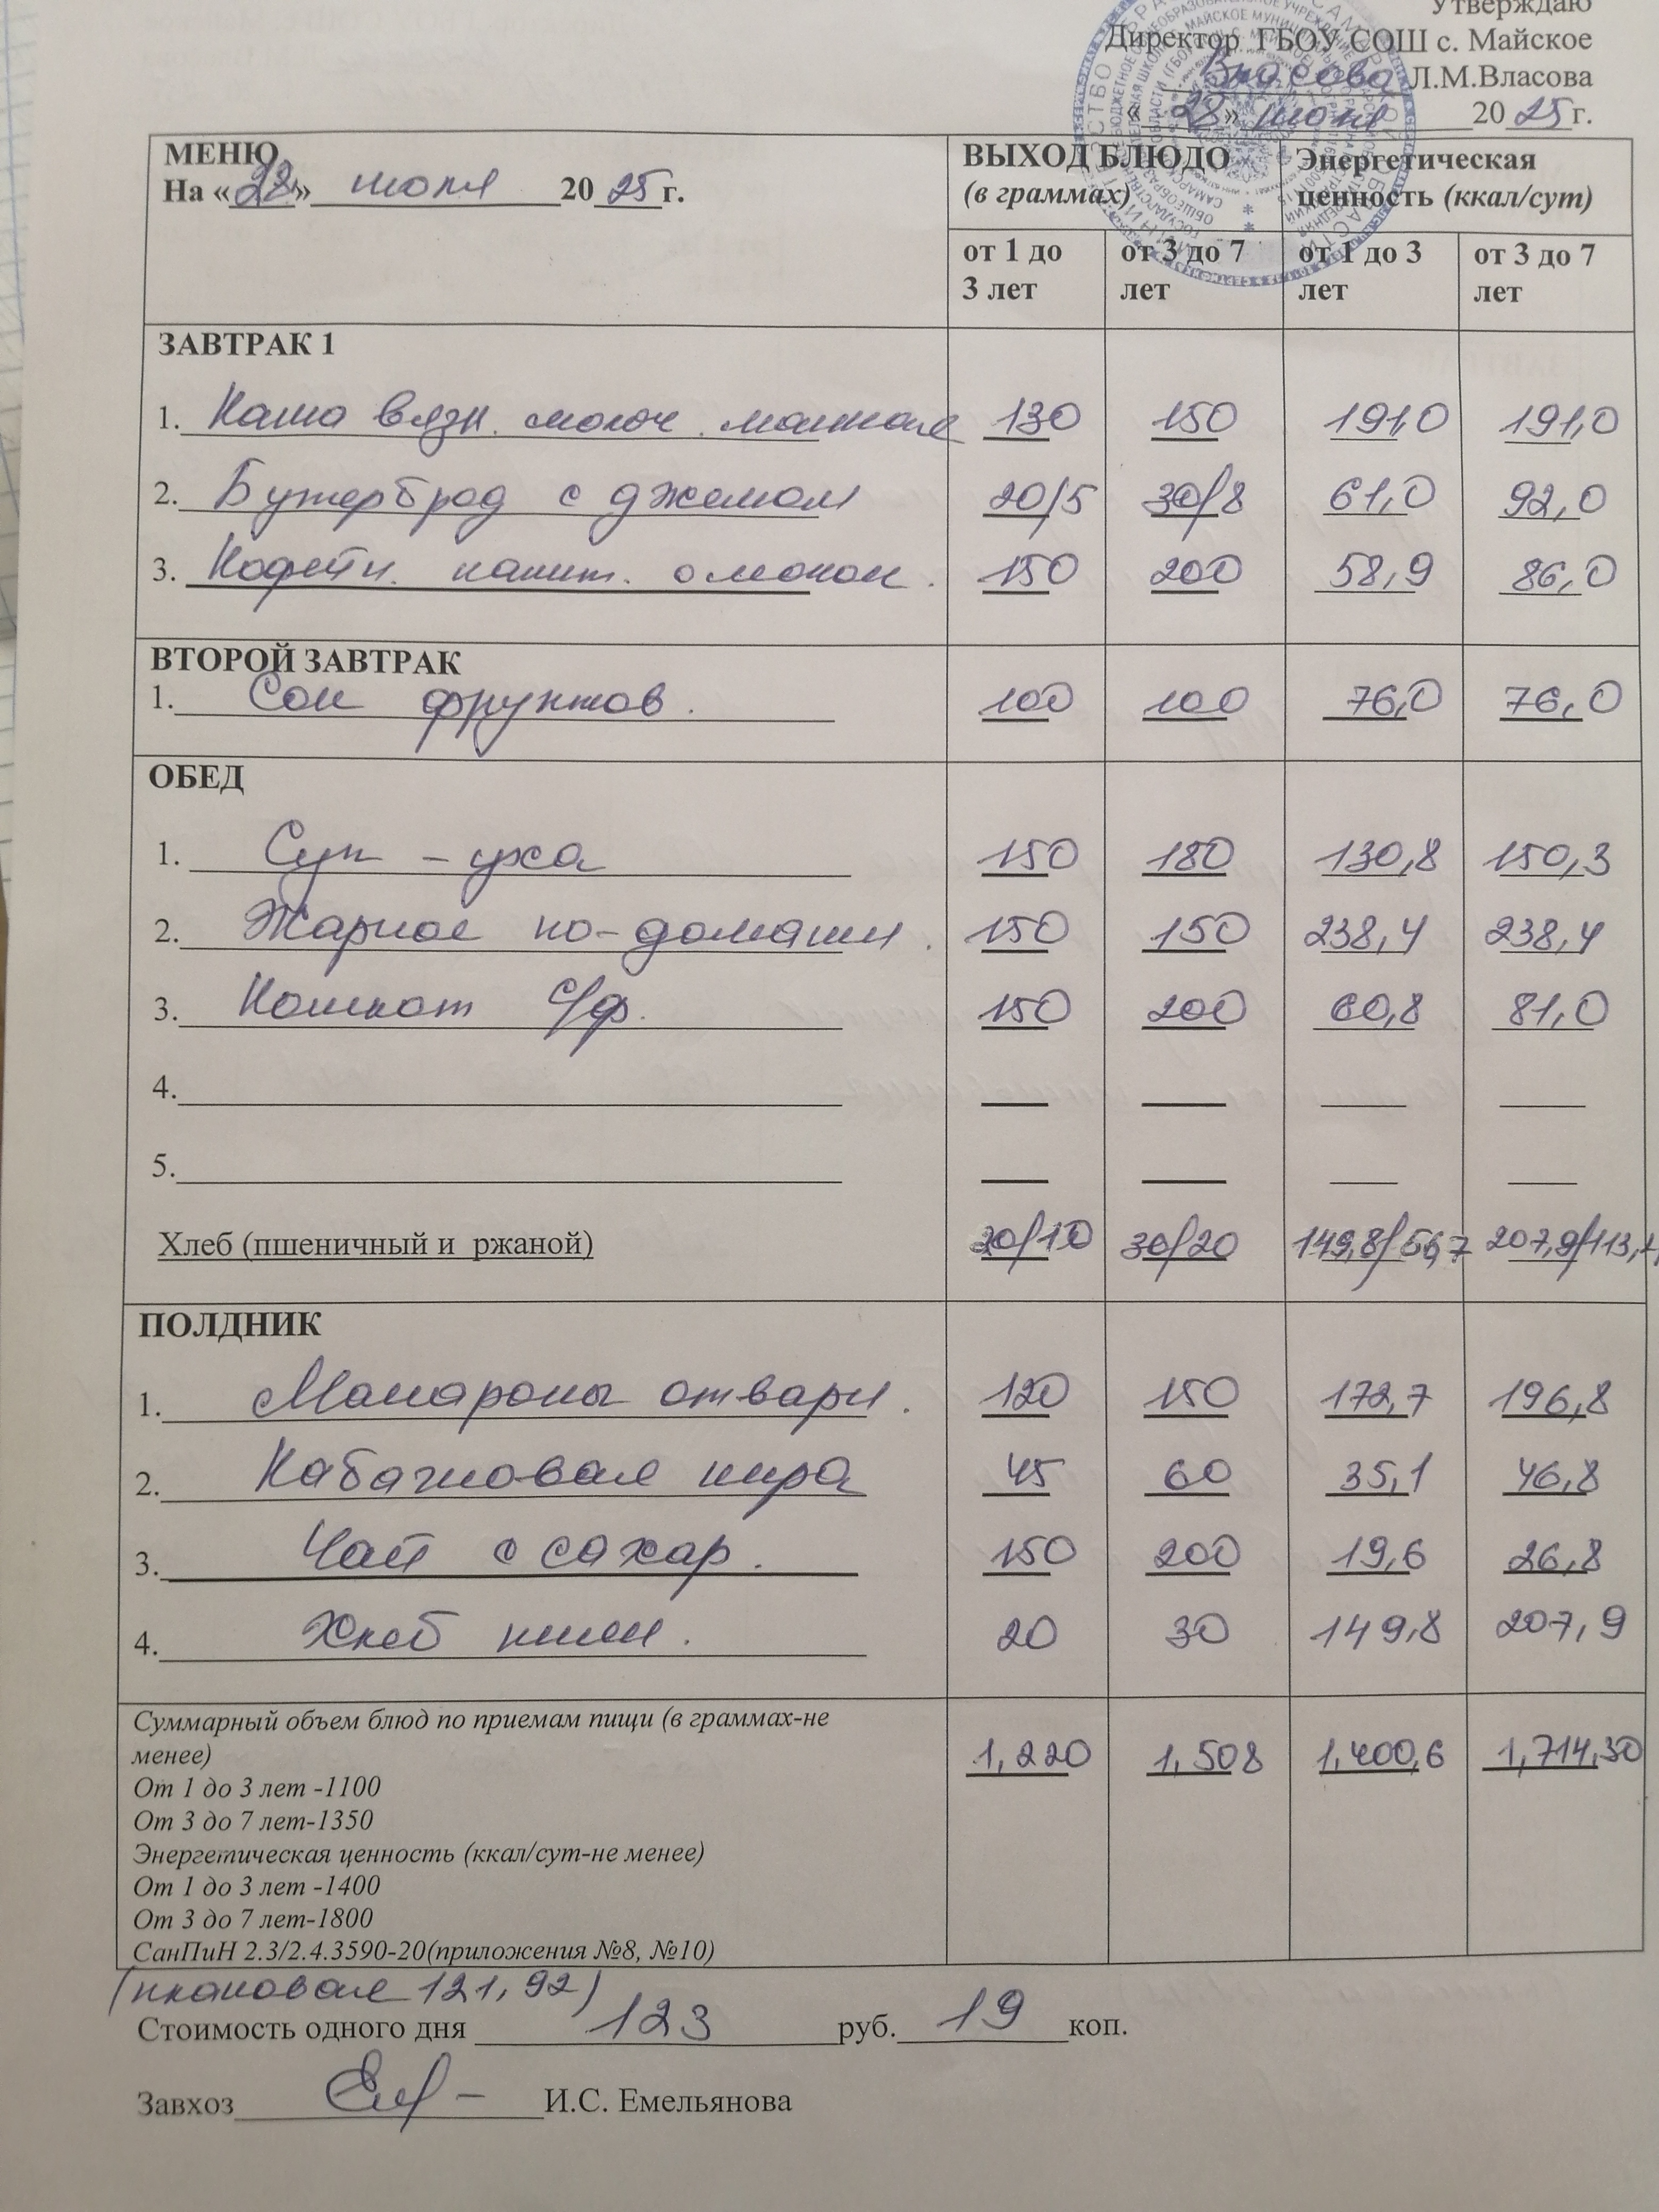 Утверждаю
Директор ГБОУ СОШ с. Майское
Власова Л.М.Власова
« 28» июля 20 25 г.
МЕНЮ
На «28» июля 20 25 г.
ВЫХОД БЛЮДО
(в граммах)
Энергетическая
ценность (ккал/сут)
от 1 до
3 лет
от 3 до 7
лет
от 1 до 3
лет
от 3 до 7
лет
ЗАВТРАК 1
1. Каша вязк. молоч. манная 130 150 191,0 191,0
2. Бутерброд с джемом 20/5 30/8 61,0 92,0
3. Кофейн. напит. с молоком. 150 200 58,9 86,0
ВТОРОЙ ЗАВТРАК
1. Сок фруктов. 100 100 76,0 76,0
ОБЕД
1. Суп - уха 150 180 130,8 150,3
2. Жаркое по-домашн. 150 150 238,4 238,4
3. Компот с/ф. 150 200 60,8 81,0
4.
5.
Хлеб (пшеничный и ржаной) 20/10 30/20 149,8/56,7 207,9/113,4
ПОЛДНИК
1. Макароны отварн. 120 150 172,7 196,8
2. Кабачковая икра 45 60 35,1 46,8
3. Чай с сахар. 150 200 19,6 26,8
4. Хлеб пшен. 20 30 149,8 207,9
Суммарный объем блюд по приемам пищи (в граммах-не
менее)
1,220 1,508 1,400,6 1,714,30
От 1 до 3 лет -1100
От 3 до 7 лет-1350
Энергетическая ценность (ккал/сут-не менее)
От 1 до 3 лет -1400
От 3 до 7 лет-1800
СанПиН 2.3/2.4.3590-20(приложения №8, №10)
(плановая 121,92)
Стоимость одного дня 123 руб. 19 коп.
Завхоз И.С. Емельянова